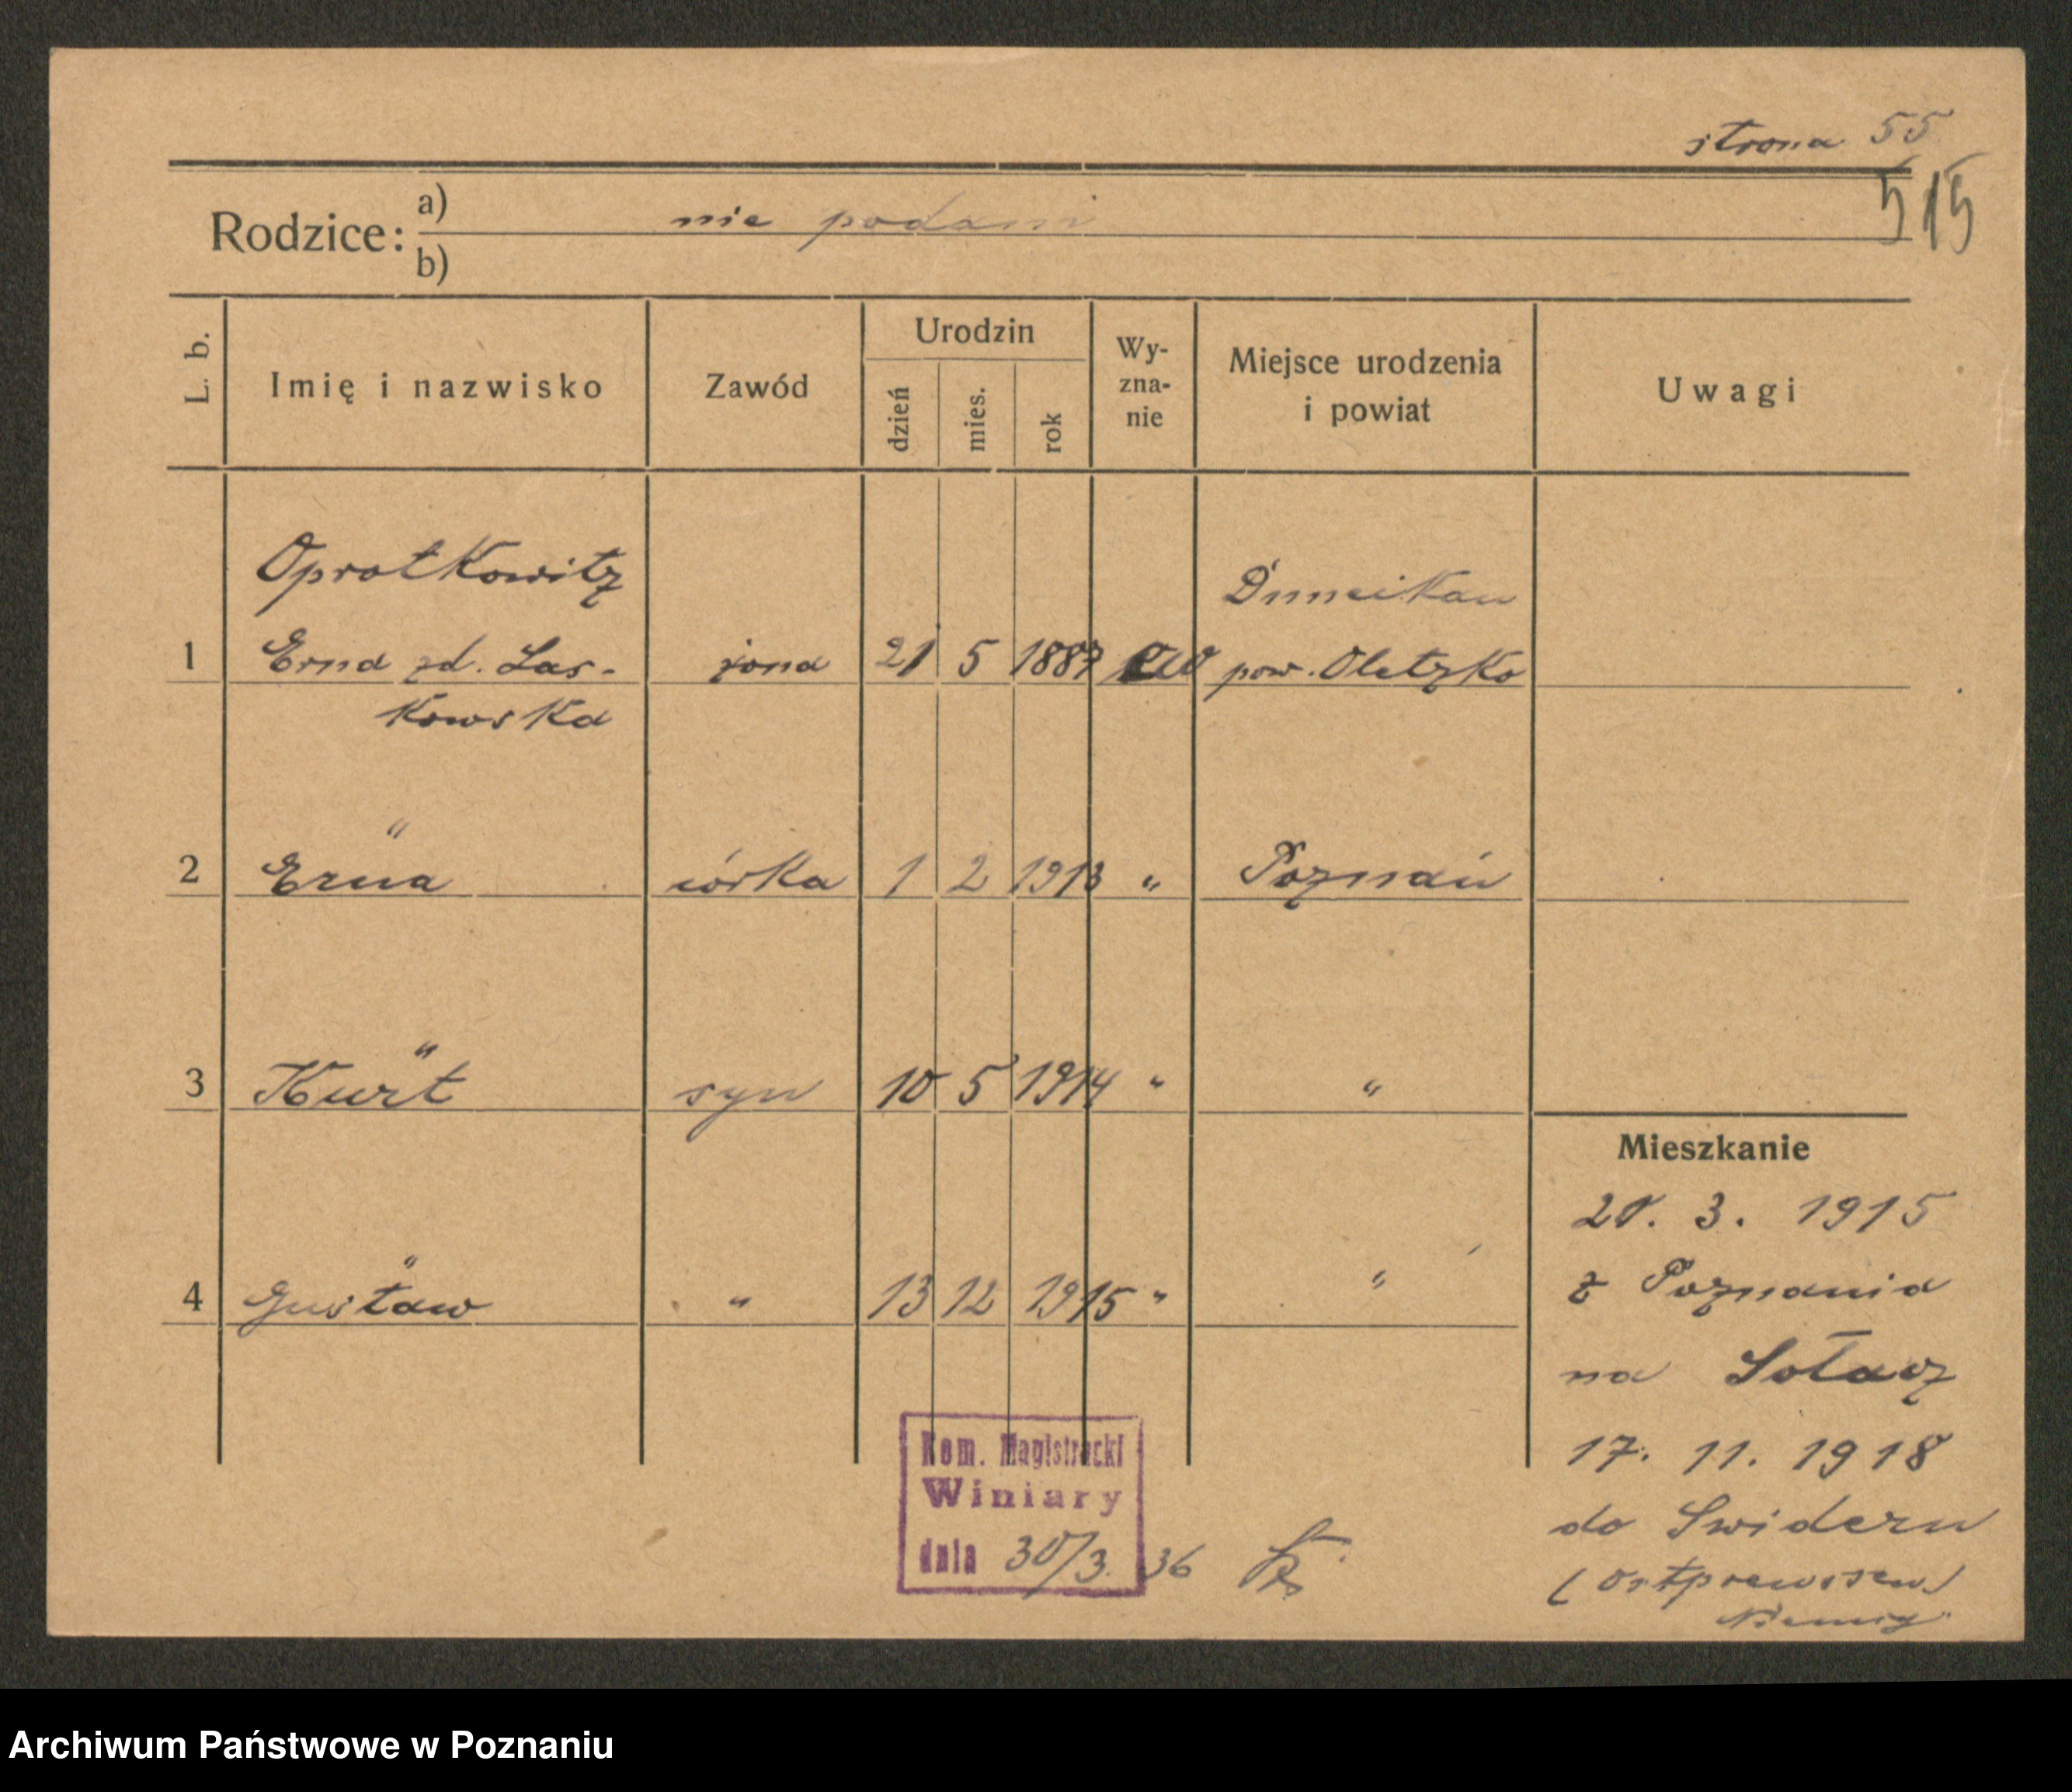 strona 55
515
Rodzice: a) nie podani
b)
L. b.
Imię i nazwisko
Zawód
Urodzin
dzień
mies.
rok
Wy-
zna-
nie
Miejsce urodzenia
i powiat
Uwagi
Oprotkowitz Duneikau
1 Erna zd. Las- żona 21 5 1887 ew pow. Oletzko
kowska
"
2 Erna córka 1 2 1913 " Poznań
"
3 Kurt syn 10 5 1914 " "
"
4 Gustaw " 13 12 1915 " "
Mieszkanie
20. 3. 1915
z Poznania
na Sołacz
17. 11. 1918
do Swidern
(Ostpreussen)
Niemcy
Kom. Magistracki
Winiary
dnia 30/3. 36
Archiwum Państwowe w Poznaniu